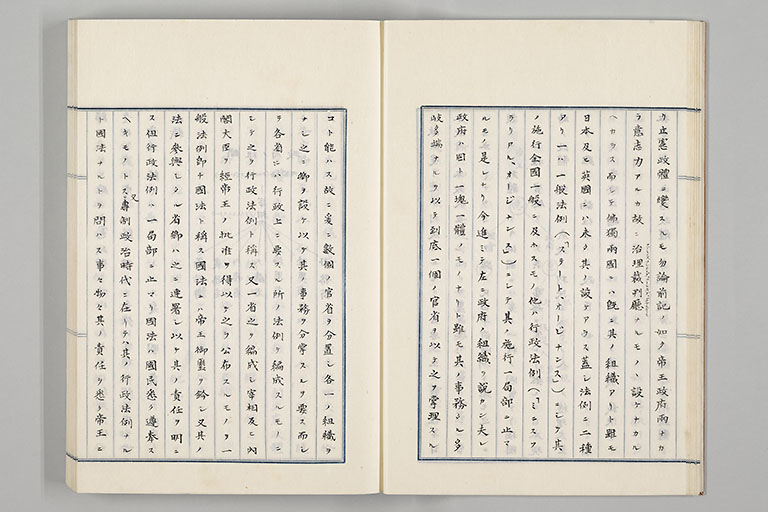 ラ止憲政體ニ變スルモ勿論前記ノ如ク帝王政府兩ナカ
ラ意志力アルカ故ニ治理裁判廳ノルモノハ設ケナカル
ヘカラス而シテ佛獨兩國ニハ既ニ其ノ組織アリト雖モ
日本及ヒ英國ニハ未タ其ノ設ケアラス蓋シ法例ニ二種
アリ一ハ一般法例(「スタートオージナンス」)ニシテ其
ノ施行全國一般ニ及ホスモノ他ハ行政法例(「ミニスフ
ラリアル、オージナンス」)ニシテ其ノ施行一局部ニ止マ
ルモノ是レナリ今進ミテ左ニ政府ノ組織ヲ說カン夫レ
政府ハ固ト一塊一體ノモノナリト雖モ其ノ事務タル多
岐多端ナルヲ以テ到底一個ノ官省ヲ以テ之ヲ掌理スル
コト能ハス故ニ爰ニ數個ノ官省ヲ分置シ各一ノ組織ヲ
ナシ之ニ卿ヲ設ケテ其ノ事務ヲ分掌スルヲ要ス而シテ
各省ニハ行政上ニ要スル所ノ法例ヲ編成スルモノニ
シテ之ヲ行政法例ト稱ス又一省之ヲ編成シ宰相及ヒ內
閣大臣ヲ經帝王ノ批准ヲ得以テ之ヲ公布スルモノヲ一
般法例即チ國法ト稱ス國法ニハ帝王御璽ヲ鈐シ又其ノ
法ニ參與シタル省卿ハ之ニ連署シ以テ其ノ責任ヲ明ニ
ス但行政法例ハ一局部ニ止マリ國法ハ國民悉ク遵奉ス
ヘキモノトス又專制政治時代ニ在リテハ其ノ行政法例タル
ト國法タルトヲ問ハス事々物々其ノ責任ヲ悉ク帝王ニ